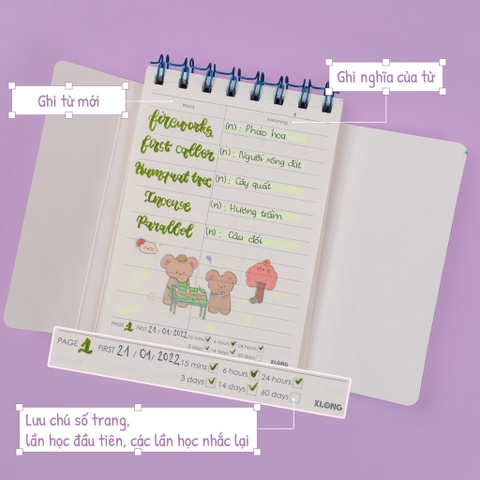 Ghi nghĩa của từ
Ghi từ mới
Word
Meaning
fireworks
(n) : Pháo hoa
first caller
(n) : Người xông đất
Kumquat tree
(n) : Cây quất
Incense
(n) : Hương trầm
Parallel
(n) : Câu đối
PAGE 1 FIRST 21 / 01 / 2022 15 mins 6 hours 24 hours
3 days 14 days 60 days
KLONG
PAGE 1 FIRST 21 / 01 / 2022 15 mins 6 hours 24 hours
3 days 14 days 60 days
KLONG
Lưu chú số trang,
lần học đầu tiên, các lần học nhắc lại